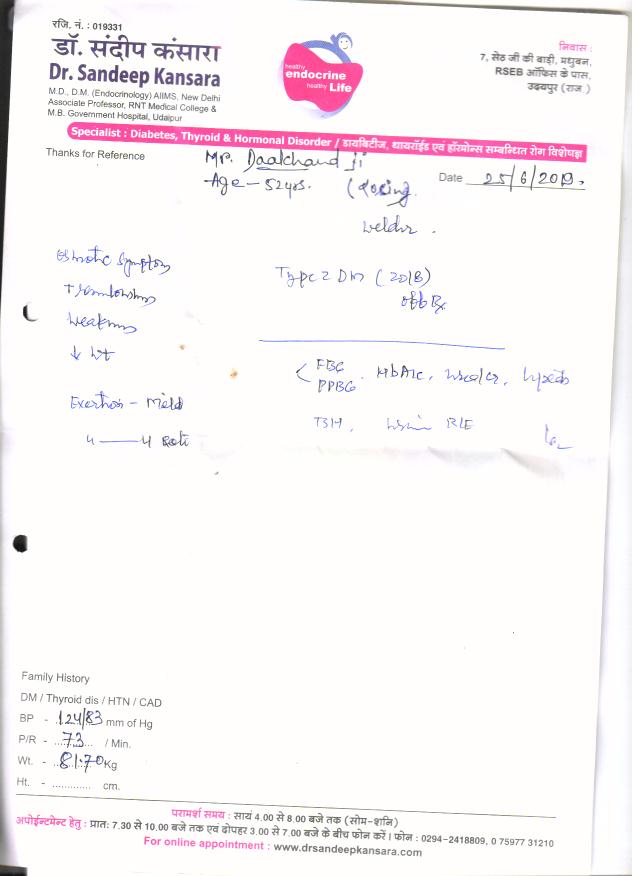 रजि. नं. : 019331
डॉ. संदीप कंसारा
Dr. Sandeep Kansara
M.D., D.M. (Endocrinology) AIIMS, New Delhi
Associate Professor, RNT Medical College &
M.B. Government Hospital, Udaipur
healthy
endocrine
healthy Life
निवास :
7, सेठ जी की बाड़ी, मधुबन,
RSEB ऑफिस के पास,
उदयपुर (राज.)
Specialist : Diabetes, Thyroid & Hormonal Disorder / डायबिटीज, थायरॉईड एवं हॉरमोन्स सम्बन्धित रोग विशेषज्ञ
Thanks for Reference
Mr. Daalchand Ji
Age - 52 yrs.
Date 25/6/2019.
Osmotic Symptoms
Type 2 DM (2018)
off Rx
Weakness
↓ Wt
FBG
PPBG, HbA1c,
Exertion - Mild
TSH,
4 — 4 Roti
Family History
DM / Thyroid dis / HTN / CAD
BP - 124/83 mm of Hg
P/R - 73 / Min.
Wt. - 81.70 Kg
Ht. - ............ cm.
परामर्श समय : सायं 4.00 से 8.00 बजे तक (सोम-शनि)
अपोईन्टमेन्ट हेतु : प्रातः 7.30 से 10.00 बजे तक एवं दोपहर 3.00 से 7.00 बजे के बीच फोन करें। फोन : 0294-2418809, 0 75977 31210
For online appointment : www.drsandeepkansara.com